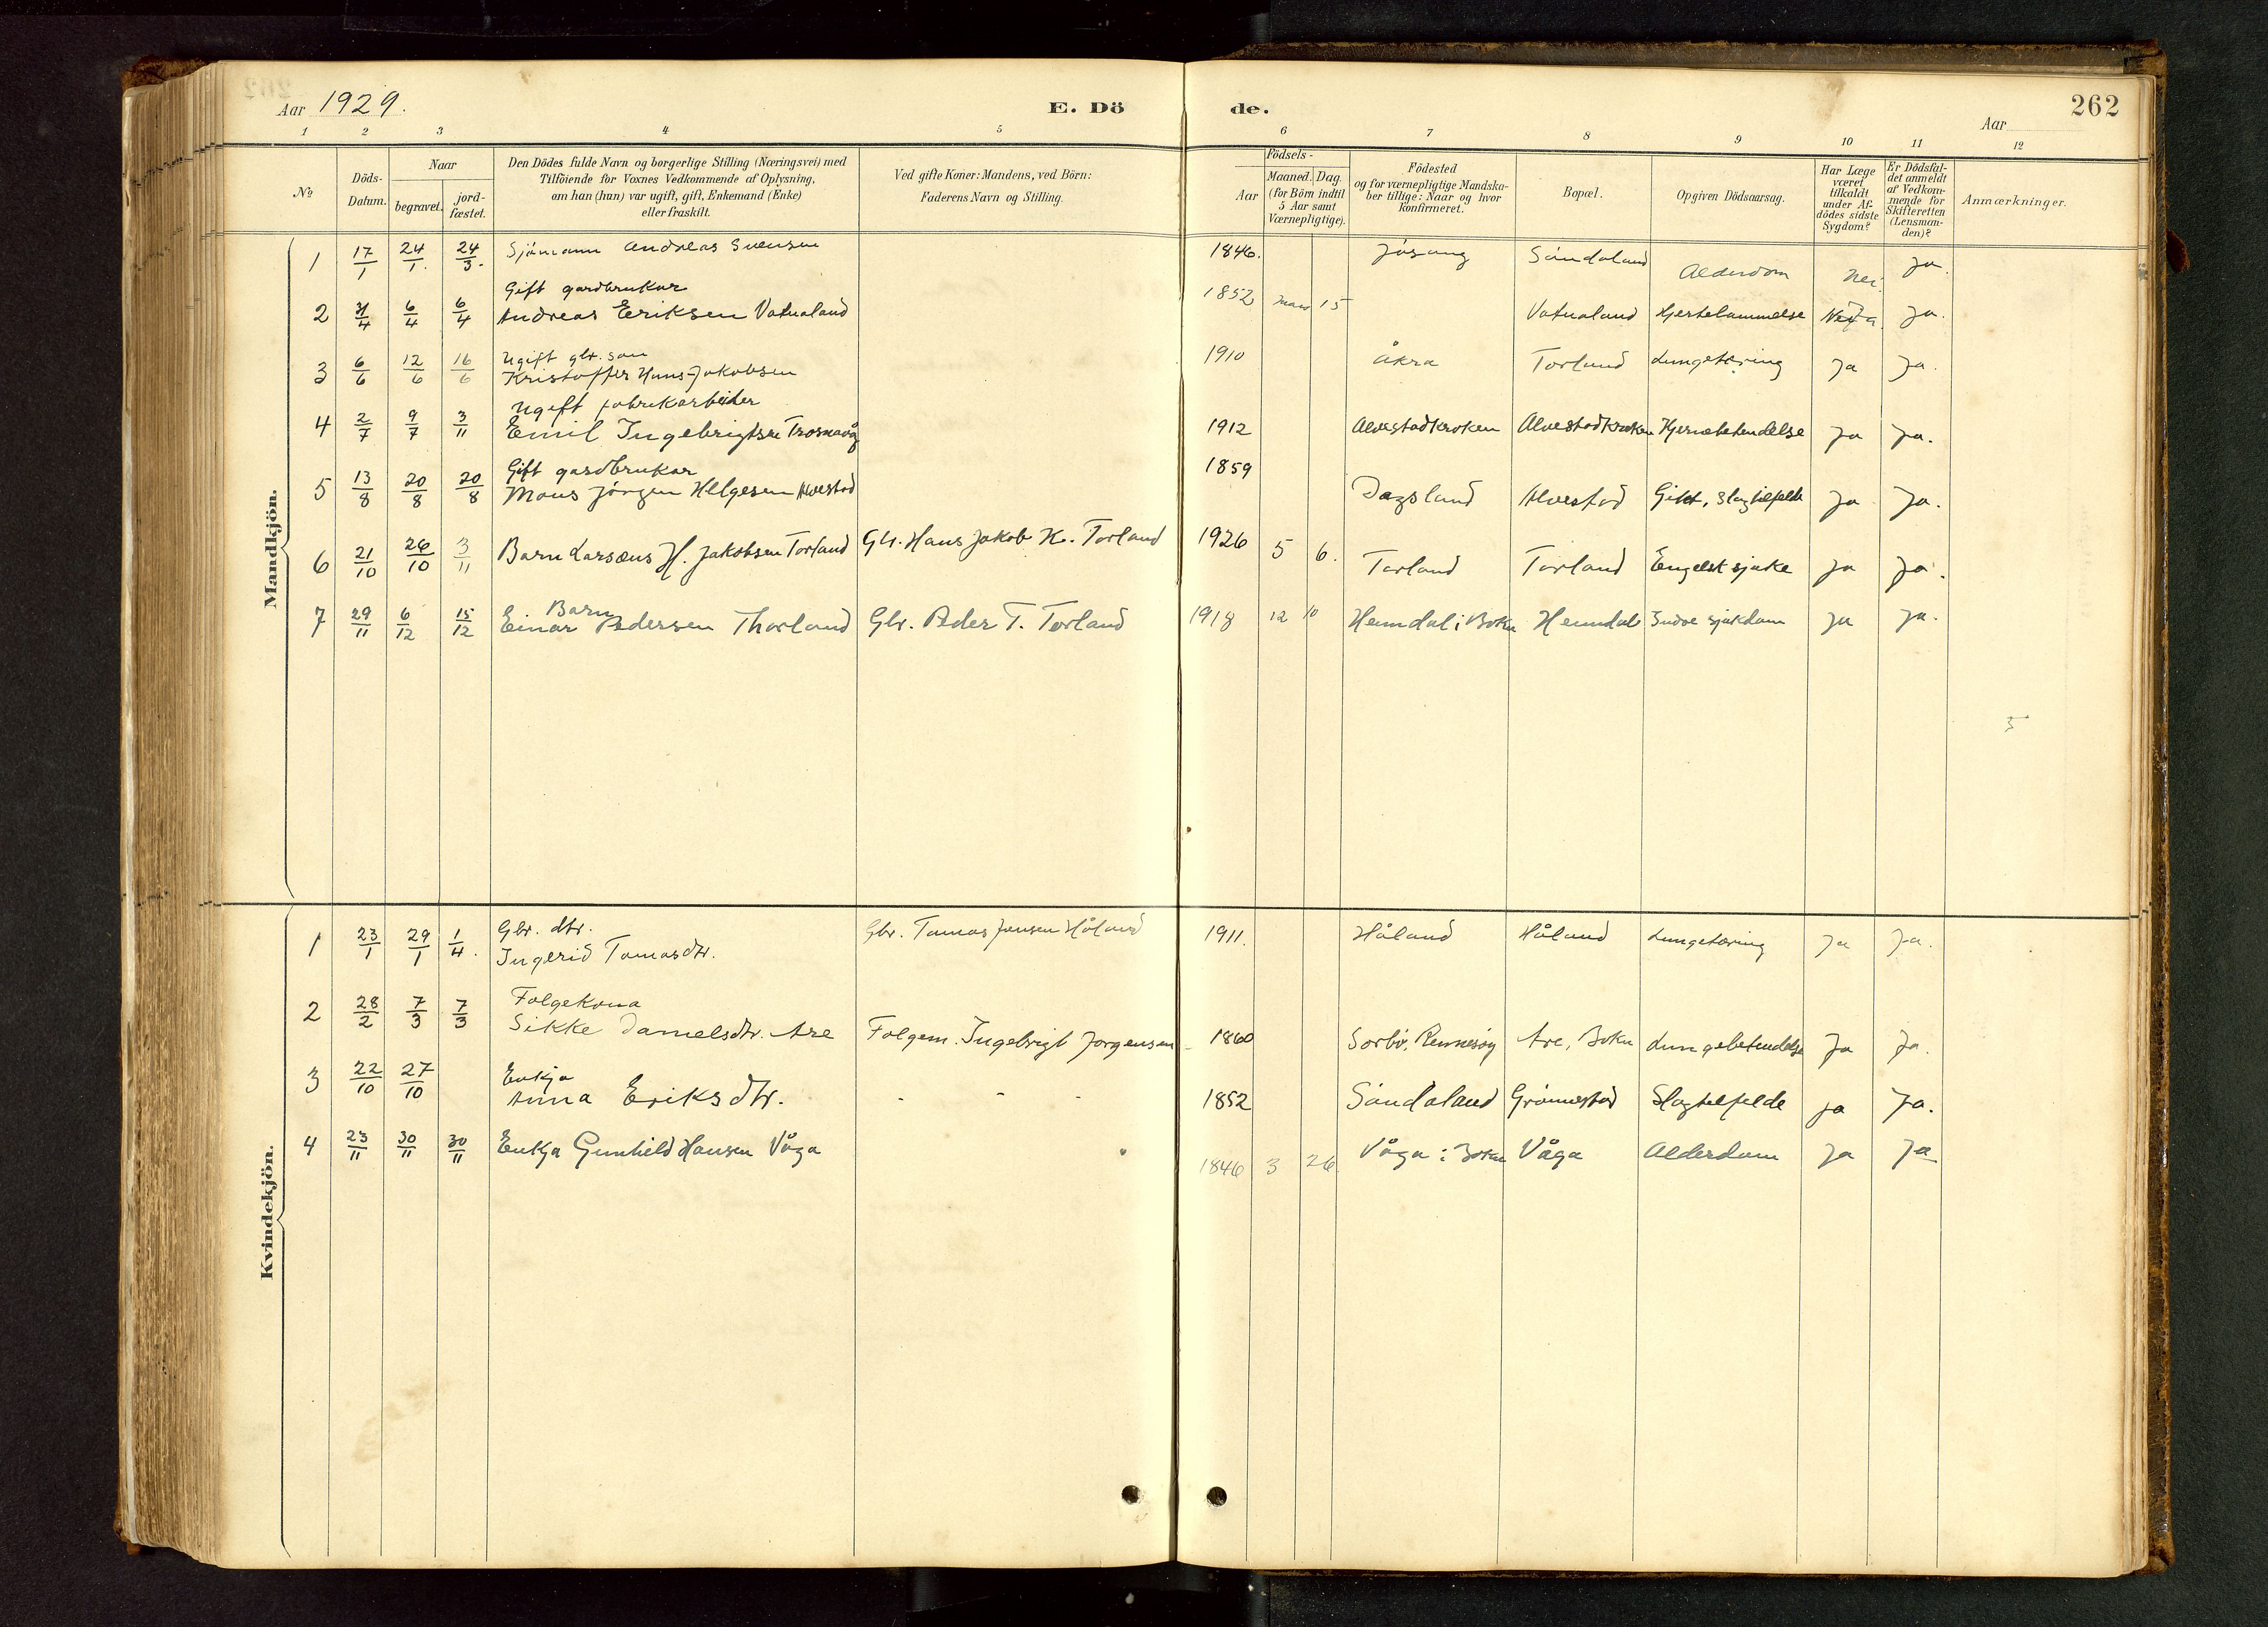 Aar 1929.
E. Dö
de.
262
Aar
1 2 3 4 5 6 7 8 9 10 11 12
No
Döds-Datum.
Naar
begravet.
jord-fæstet.
Den Dödes fulde Navn og borgerlige Stilling (Næringsvei) med
Tilföiende for Voxnes Vedkommende af Oplysning,
om han (hun) var ugift, gift, Enkemand (Enke)
eller fraskilt.
Ved gifte Koner: Mandens, ved Börn:
Faderens Navn og Stilling.
Födsels-
Aar
Maaned. Dag.
(for Börn indtil
5 Aar samt
Værnepligtige).
Födested
og for værnepligtige Mandska-
ber tillige: Naar og hvor
konfirmeret.
Bopæl.
Opgiven Dödsaarsag.
Har Læge
været
tilkaldt
under Af-
dödes sidste
Sygdom?
Er Dödsfal-
det anmeldt
af Vedkom-
mende for
Skifteretten
(Lensman-
den)?
Anmærkninger.
Mandkjön.
1 17/1 24/1. 24/3. Sjömann Andreas Svensen 1846. Jösang Sandaland Alderdom Nei. Ja.
Gift gardbrukar
2 3/4 6/4 6/4 Andreas Eriksen Vatnaland 1852 mars 15 Vatnaland Hjertelammelse Ja. Ja.
Ugift gbr. son
3 6/6 12/6 16/6 Kristoffer Hans Jakobsen 1910 Åkra Torland Lungetæring Ja Ja.
Ugift fabrikarbeider
4 2/7 9/7 3/11 Emil Ingebrigtsen Trosnavåg 1912 Alvestadkroken Alvestadkroken Hjernebetendelse Ja Ja.
Gift gardbrukar
5 13/8 20/8 20/8 Mons Jörgen Helgesen Alvestad 1859 Dagsland Alvestad Gikt, slagtilfelde Ja Ja.
6 21/10 26/10 3/11 Barn Larsens H. Jakobsen Torland Gbr. Hans Jakob K. Torland 1926 5 6. Torland Torland Engelsk sjuke Ja Ja.
Barn
7 29/11 6/12 15/12 Einar Pedersen Thorland Gbr. Peder T. Torland 1918 12 10 Hemdal i Bokn Hemdal Indre sjukdom Ja Ja.
5
Kvindekjön.
Gbr. dtr.
1 23/1 29/1 1/4. Ingerid Tomasdtr. Gbr. Tomas Jonsen Håland 1911. Håland Håland Lungetæring Ja Ja.
Folgekona
2 28/2 7/3 7/3 Sikke Danielsdtr. Are Folgem. Ingebrigt Jorgensen 1860 Sorbö, Rennesöy Are, Bokn Lungebetendelse Ja Ja.
Enkja
3 22/10 27/10 Anna Eriksdtr. - - - 1852 Sandaland Grönnestad Slagtelfelde Ja Ja.
4 23/11 30/11 30/11 Enkja Gunhild Hansen Våga 1846 3 26. Våga i Bokn Våga Alderdom Ja Ja